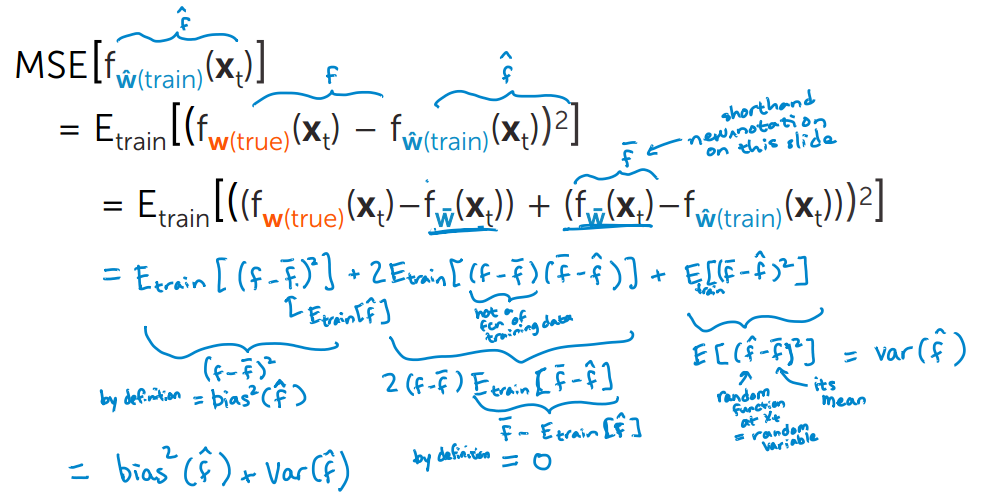 f̂
MSE[f_ŵ(train)(x_t)]
f f̂
= E_train[(f_w(true)(x_t) − f_ŵ(train)(x_t))²]
shorthand
new notation
on this slide
f̄
= E_train[((f_w(true)(x_t)−f_w̄(x_t)) + (f_w̄(x_t)−f_ŵ(train)(x_t)))²]
= E_train[(f-f̄)²] + 2E_train[(f-f̄)(f̄-f̂)] + E_train[(f̄-f̂)²]
E_train[f̂]
not a
fcn of
training data
(f-f̄)²
by definition = bias²(f̂)
2(f-f̄) E_train[f̄-f̂]
f̄ - E_train[f̂]
by definition = 0
E[(f̂-f̄)²] = var(f̂)
random
function
at x_t
= random
variable
its
mean
= bias²(f̂) + Var(f̂)